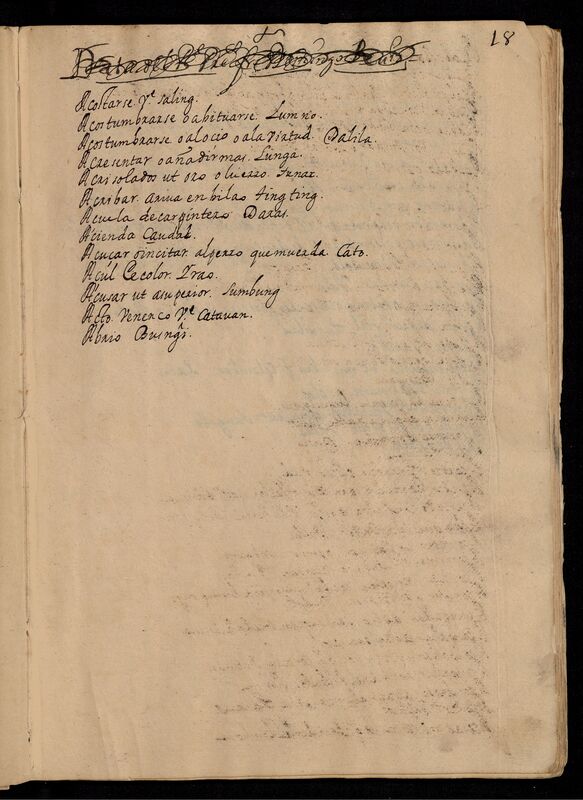 18
Acostarse v.e saling.
Acostumbrarse o abituarse. Lumno.
Acostumbrarse o alocio o ala virtud. Dalila.
Acresentar o añadir mas. Lunga.
Acrisolados ut oro o luerzo. Funar.
Acribar. arina en hilao tingting.
Acuela de carpintero Daras.
Acienda Caudal.
Acucar o incitar. alperro que muerda. Cato.
Acúl Ce color. Trao.
Acusar ut asuperior. Sumbung
Acto. Venereo v.e Catauan.